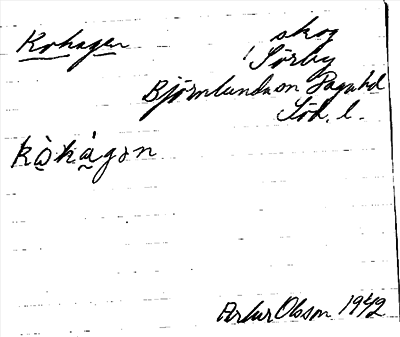 Kohagen
skog
Sörby
Björnlunda sn Daga hd
Söd. l.
kò̤kà̰gən
Artur Olsson 1942